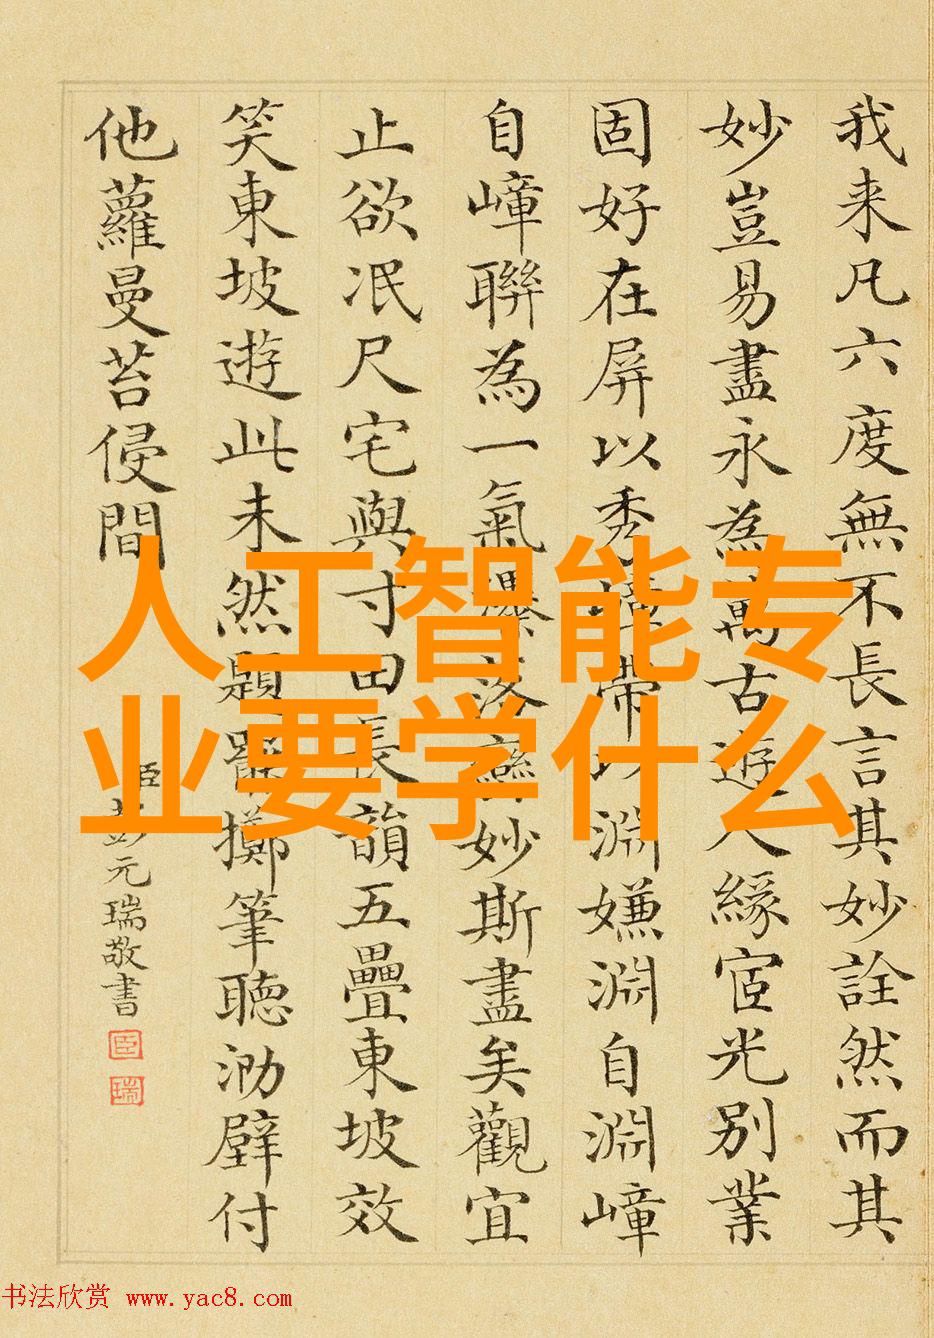 我来凡六度無不長言其妙詮然而其
妙豈易盡永為萬古遊人緣宧光別業
固好在屏以秀嶂帶以淵嫌淵自淵嶂
自嶂聯為一氣瀑落變妙斯盡矣觀宜
止欲泯尺宅與寸田長韻五疊東坡效
笑東坡遊此未然題罷擲筆聽泐壁付
他蘿曼苔侵間
臣彭元瑞敬書
臣
瑞
人工智能专
业要学什么
书法欣赏 www.yac8.com